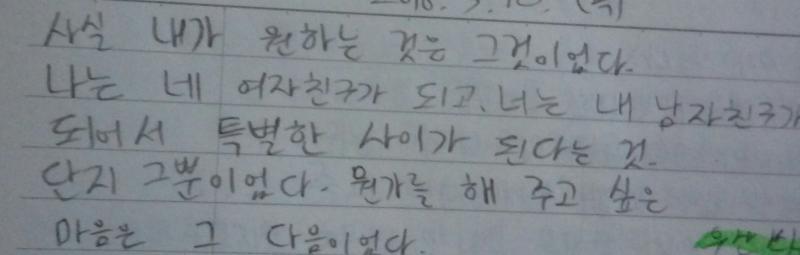 사실 내가 원하는 것은 그것이었다.
나는 네 여자친구가 되고, 너는 내 남자친구가
되어서 특별한 사이가 된다는 것.
단지 그뿐이었다. 뭔가를 해 주고 싶은
마음은 그 다음이었다.